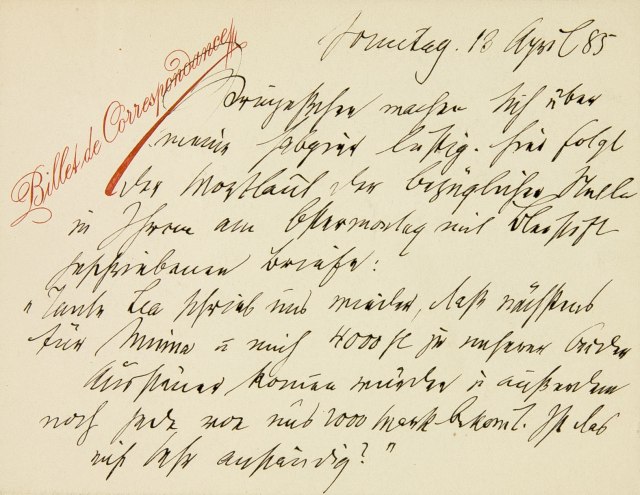 Billet de Correspondance
Sonntag. 13 April 85
Prinzeßchen machen sich über
meine Habgier lustig. Hier folgt
der Wortlaut der bezüglichen Stelle
in Ihrem am Ostermontag mit Bleistift
geschriebenen Briefe:
"Tante Lea schrieb uns wieder, daß nächstens
für Minna u mich 4000 fl zu unserer beider
Aussteuer komen würden u außerdem
noch jede von uns 2000 Mark bekomt. Ist das
nicht sehr anständig?"